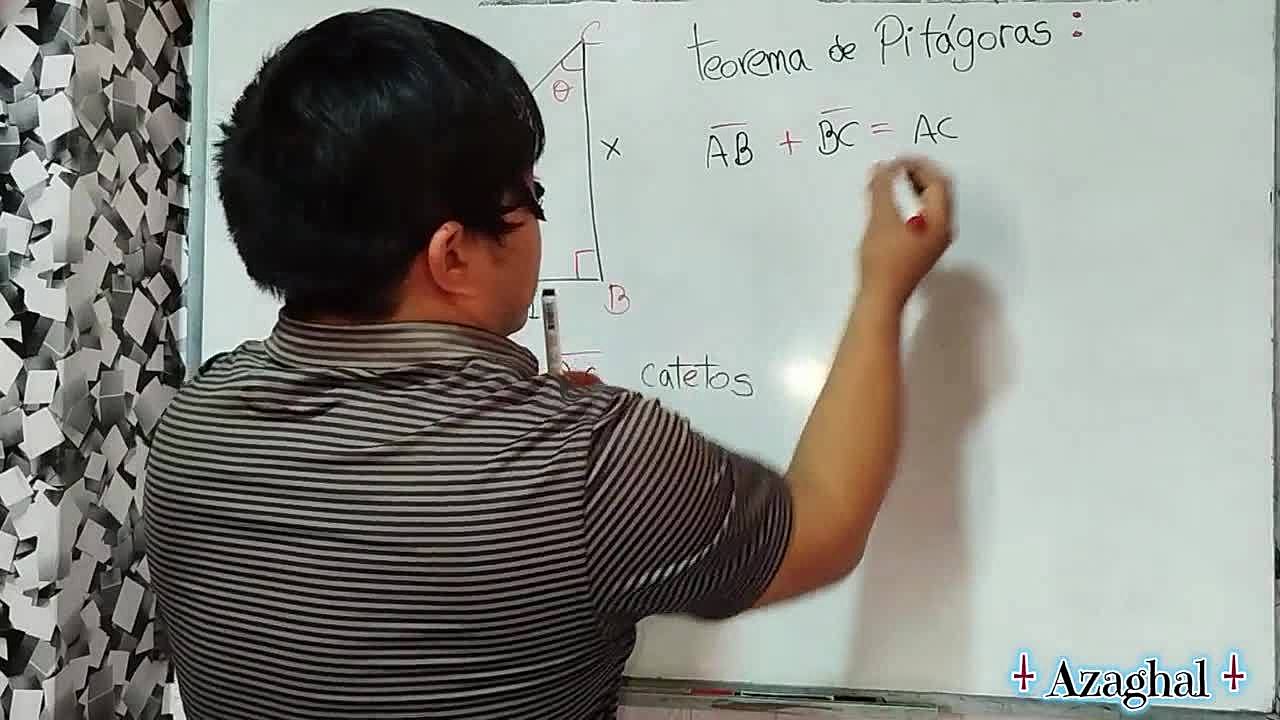 teorema de Pitágoras:
C
θ
A̅B̅ + B̅C̅ = AC
x
B
catetos
Azaghal